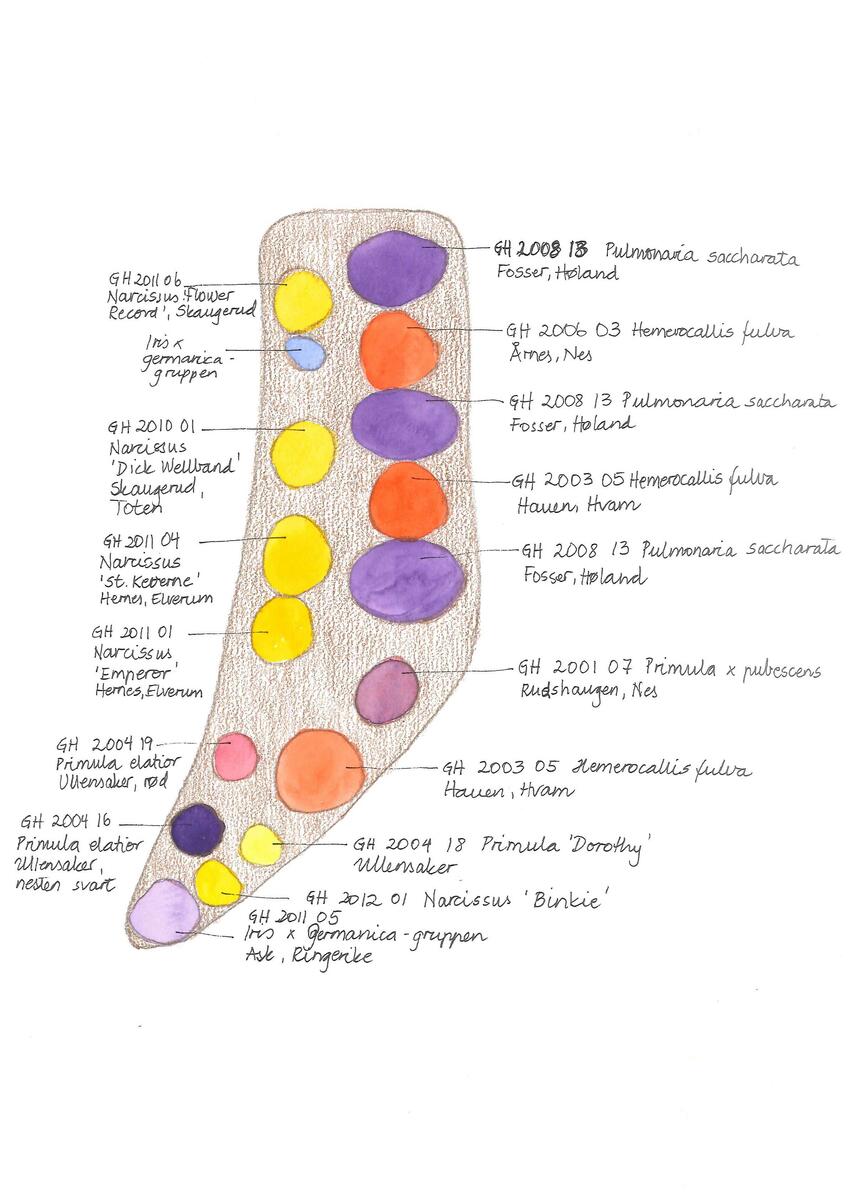 GH 2008 13 Pulmonaria saccharata
Fosser, Høland
GH 2011 06
Narcissus 'Flower
Record', Skaugerud
GH 2006 03 Hemerocallis fulva
Årnes, Nes
Iris x
germanica-
gruppen
GH 2008 13 Pulmonaria saccharata
Fosser, Høland
GH 2010 01
Narcissus
'Dick Wellband'
Skaugerud,
Toten
GH 2003 05 Hemerocallis fulva
Hauen, Hvam
GH 2011 04
Narcissus
'St. Keverne'
Hernes, Elverum
GH 2008 13 Pulmonaria saccharata
Fosser, Høland
GH 2011 01
Narcissus
'Emperor'
Hernes, Elverum
GH 2001 07 Primula x pubescens
Rudshaugen, Nes
GH 2004 19
Primula elatior
Ullensaker, rød
GH 2003 05 Hemerocallis fulva
Hauen, Hvam
GH 2004 16
Primula elatior
Ullensaker,
nesten svart
GH 2004 18 Primula 'Dorothy'
Ullensaker
GH 2012 01 Narcissus 'Binkie'
GH 2011 05
Iris x germanica-gruppen
Ask, Ringerike